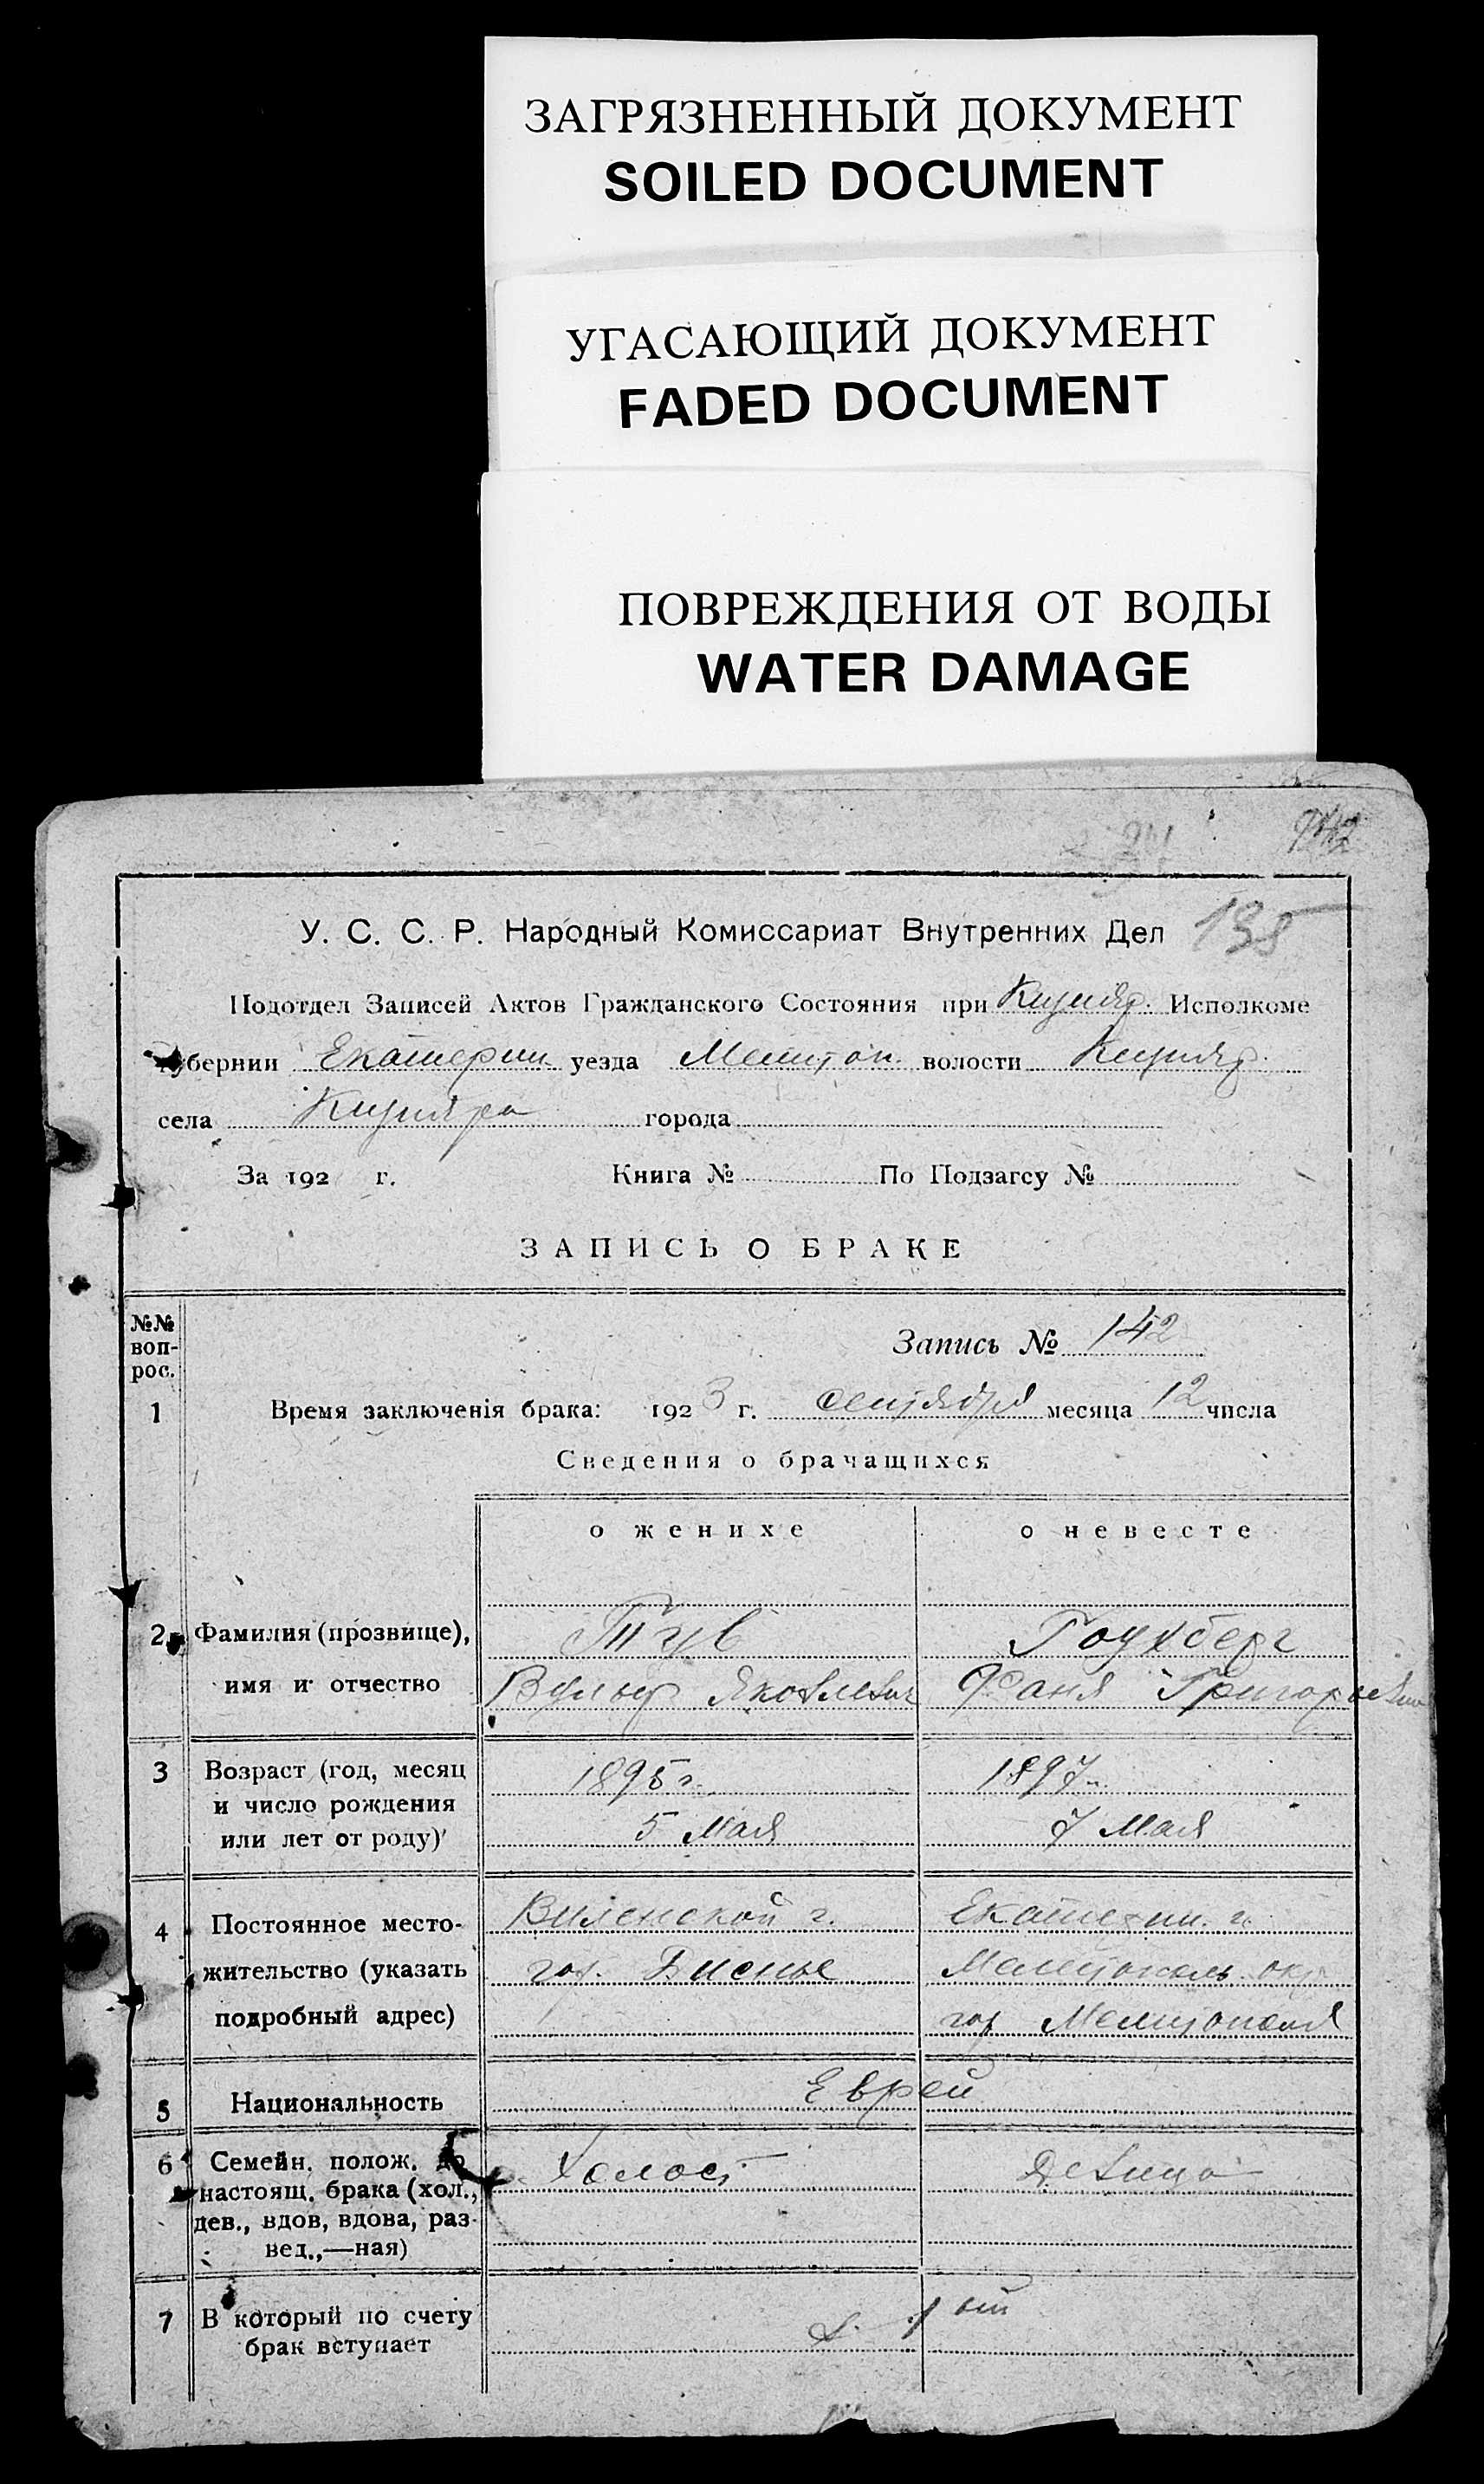 ЗАГРЯЗНЕННЫЙ ДОКУМЕНТ
SOILED DOCUMENT
УГАСАЮЩИЙ ДОКУМЕНТ
FADED DOCUMENT
ПОВРЕЖДЕНИЯ ОТ ВОДЫ
WATER DAMAGE
142
У. С. С. Р. Народный Комиссариат Внутренних Дел 135
Подотдел Записей Актов Гражданского Состояния при Кизияр. Исполкоме
Губернии Екатерин уезда Мелитоп. волости Кизияр.
села Кизияра города
За 192 г. Книга № По Подзагсу №
ЗАПИСЬ О БРАКЕ
№№ вопрос.
Запись № 142
1 Время заключенія брака: 1923 г. сентября месяца 12 числа
Сведения о брачащихся
о женихе о невесте
2 Фамилия (прозвище), Тув
имя и отчество Вульф Яковлевич Фаня Григорьевна
3 Возраст (год, месяц 1895 г. 1897 г.
и число рождения
или лет от роду) 5 Мая 7 Мая
4 Постоянное место- Виленской г. Екатерин. г.
жительство (указать гор. Дисны Мелитополь. окр
подробный адрес) гор Мелитополя
5 Национальность Еврей
6 Семейн. полож. до Холост Девица
настоящ. брака (хол.,
дев., вдов, вдова, раз-
вед.,—ная)
7 В который по счету 1 ый
брак вступает